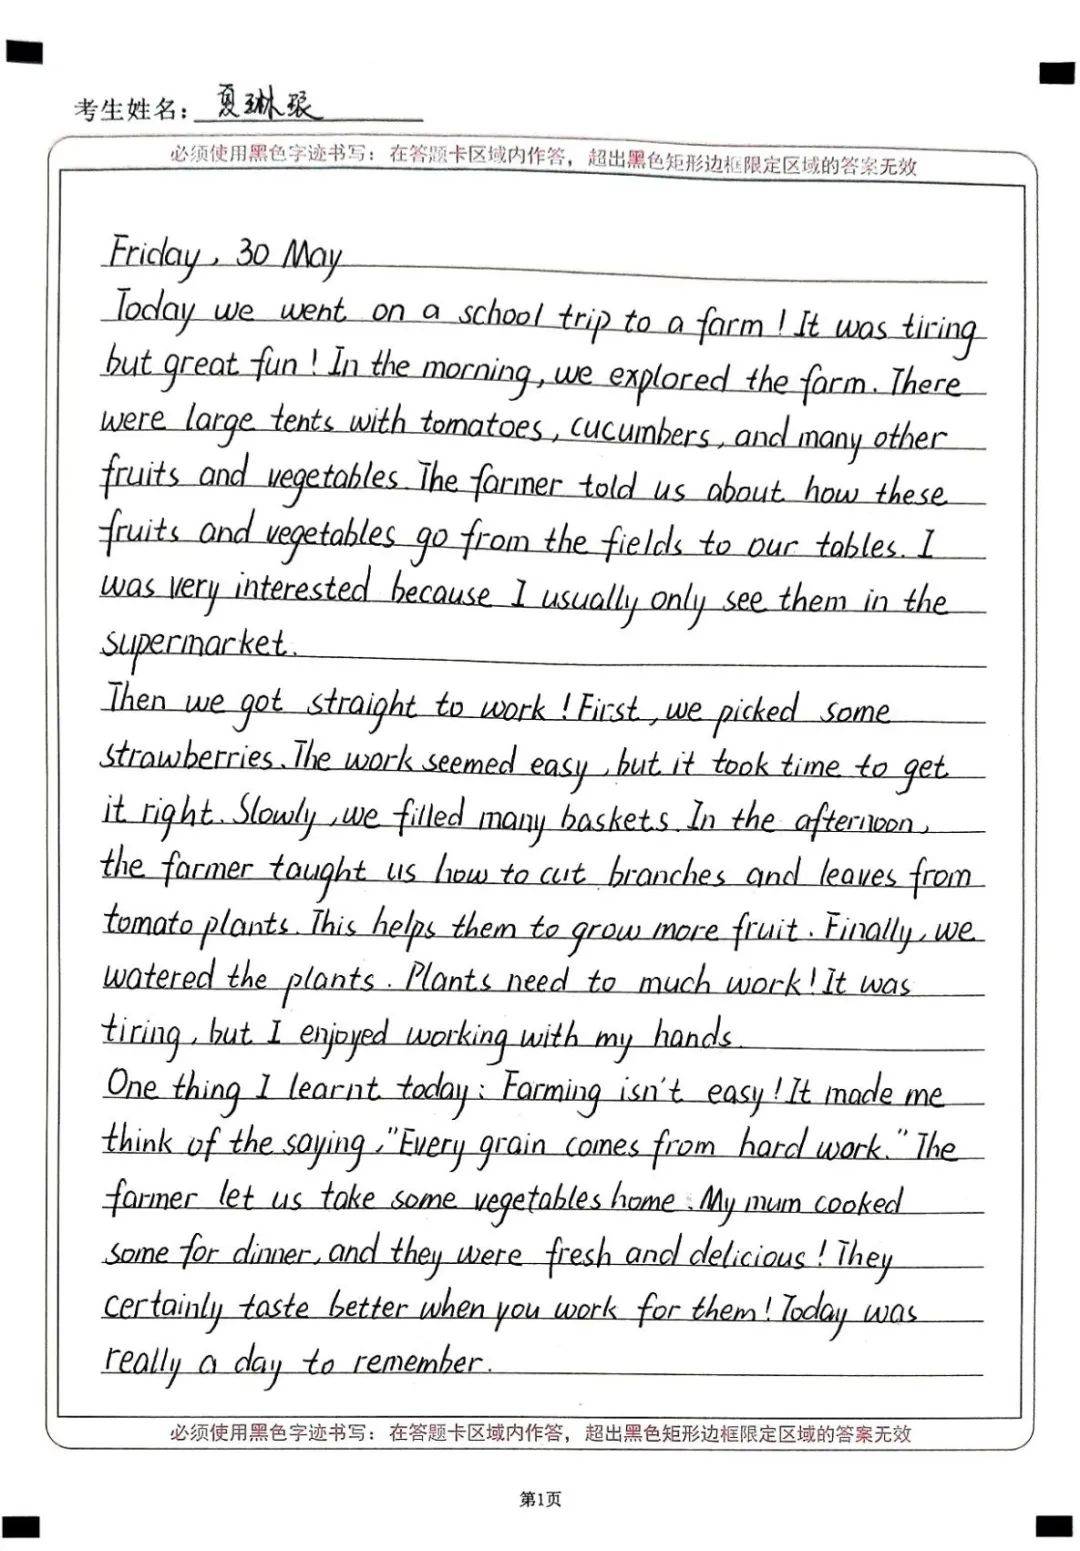 考生姓名：夏琳琅
必须使用黑色字迹书写：在答题卡区域内作答，超出黑色矩形边框限定区域的答案无效
Friday, 30 May
Today we went on a school trip to a farm! It was tiring
but great fun! In the morning, we explored the farm. There
were large tents with tomatoes, cucumbers, and many other
fruits and vegetables. The farmer told us about how these
fruits and vegetables go from the fields to our tables. I
was very interested because I usually only see them in the
supermarket.
Then we got straight to work! First, we picked some
strawberries. The work seemed easy, but it took time to get
it right. Slowly, we filled many baskets. In the afternoon,
the farmer taught us how to cut branches and leaves from
tomato plants. This helps them to grow more fruit. Finally, we
watered the plants. Plants need to much work! It was
tiring, but I enjoyed working with my hands.
One thing I learnt today: Farming isn't easy! It made me
think of the saying, "Every grain comes from hard work." The
farmer let us take some vegetables home. My mum cooked
some for dinner, and they were fresh and delicious! They
certainly taste better when you work for them! Today was
really a day to remember.
必须使用黑色字迹书写：在答题卡区域内作答，超出黑色矩形边框限定区域的答案无效
第1页